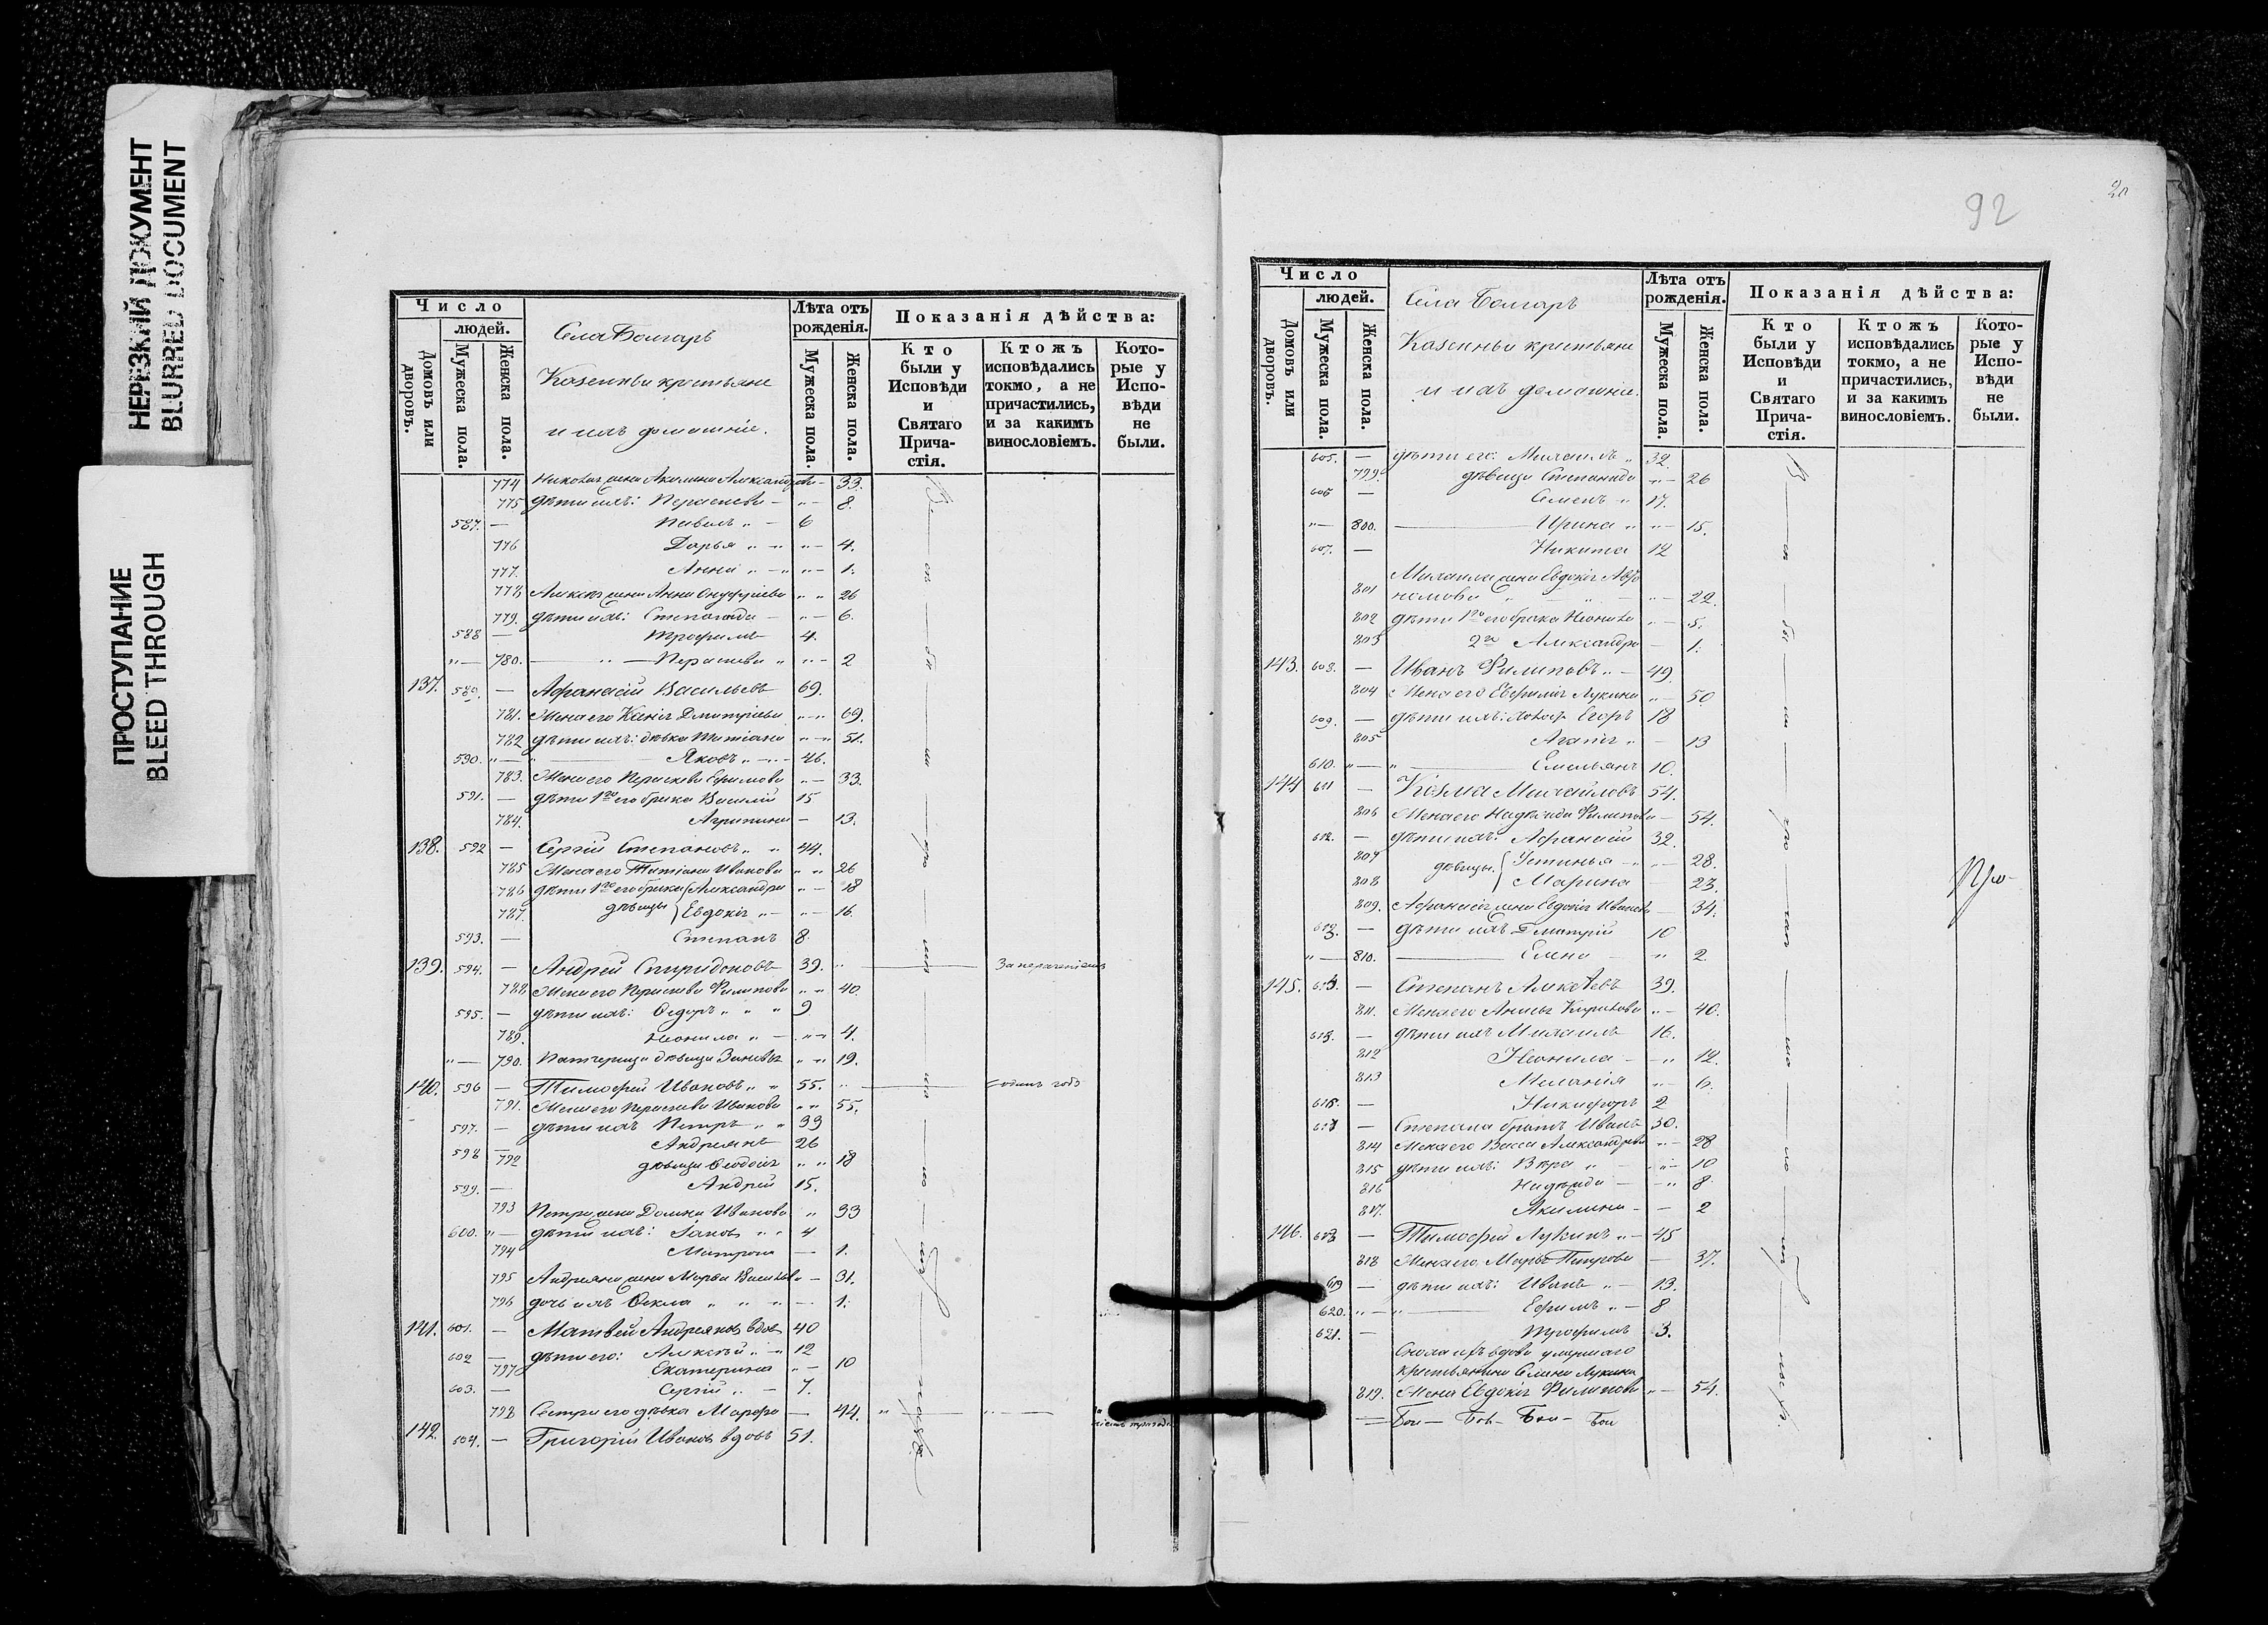 НЕРЕЗКИЙ ДОКУМЕНТ
BLURRED DOCUMENT
ПРОСТУПАНИЕ
BLEED THROUGH
Число
людей.
Домовъ или дворовъ.
Мужеска пола.
Женска пола.
Села Болгаръ
Казенныи крестьяне
и ихъ домашніе.
Лѣта отъ рожденія.
Мужеска пола.
Женска пола.
Показанія дѣйства:
Кто были у Исповѣди и Святаго Прича-стія.
Ктожъ исповѣдались токмо, а не причастились, и за какимъ винословіемъ.
Кото-рые у Испо-вѣди не были.
774 жена Акилина Александрова 33.
775 дѣти ихъ: Параскева 8.
587. Павелъ 6
776 Дарья 4.
777. Анна 1.
778 жена Анна Онуфріева 26
779. дѣти ихъ: Степанида 6.
588 Трофимъ 4.
780. Параскева 2
137. 589. Афанасій Васильевъ 69.
781. Жена его Ксенія Дмитріева 69.
782 дѣти ихъ: дѣвка Татіана 51.
590. Яковъ 46.
783. Жена его Параскева Ефимова 33.
591. дѣти 1го его брака Василій 15
784. Агрипина 13.
138. 592 Сергій Степановъ 44.
785 Жена его Татіана Иванова 26
786 дѣти 1го его брака Александра 18
787. дѣвицы Евдокія 16.
593. Степанъ 8.
139. 594. Андрей Спиридоновъ 39.
788 Жена его Параскева Филипова 40.
595. дѣти ихъ: Ѳедоръ 9
789. Неонила 4.
790. Патчерица дѣвица 19.
140. 596 Тимофей Ивановъ 55. одинъ годъ
791. Жена его Параскева Иванова 55.
597. дѣти ихъ Петръ 33
598 Андреянъ 26
792 дѣвица Ѳеодосія 18
599. Андрей 15.
793 Петра жена Домна Иванова 33
600. дѣти ихъ: 4
794 Матрона 1.
795 Андреяна жена Марья 31.
796 дочь ихъ Ѳекла 1.
141. 601. Матвей Андреяновъ вдов 40
602 дѣти его: Алексѣй 12
797 Екатерина 10
603. Сергій 7.
798 Сестра его дѣвка Марфа 44.
142. 604. Григорій Ивановъ вдовъ 51.
92
Число
людей.
Домовъ или дворовъ.
Мужеска пола.
Женска пола.
Села Болгаръ
Казенныи крестьяне
и ихъ домашніе.
Лѣта отъ рожденія.
Мужеска пола.
Женска пола.
Показанія дѣйства:
Кто были у Исповѣди и Святаго Прича-стія.
Ктожъ исповѣдались токмо, а не причастились, и за какимъ винословіемъ.
Кото-рые у Испо-вѣди не были.
605. дѣти его: Михаилъ 32.
799. дѣвица Степанида 26
606 Семенъ 17.
800. Ирина 15.
607. Никита 12
Михаила жена Евдокія
801 22.
802 дѣти 1го его брака 5.
803 2го Александра 1.
143. 608. Иванъ Филиповъ 49
804 Жена его Евфимія Лукина 50
609. дѣти ихъ: Егоръ 18
805 Агапія 13
610. Емельянъ 10.
144 611 Козма Михайловъ 54.
806 Жена его Надежда Филипова 54.
612. дѣти ихъ: Афанасій 32.
807 дѣвицы. Устинья 28.
808 Марина 23.
809. Афанасія жена Евдокія 34.
613. дѣти ихъ Дмитрій 10
810. Елена 2.
145. Степанъ Алексѣевъ 39.
811. Жена его 40.
дѣти ихъ Михаилъ 16.
812 Неонила 12.
813 Меланія 6.
Никифоръ 2
Степана братъ Иванъ 30.
814 Жена его Васса Александрова 28
815 дѣти ихъ: Вѣра 10
816 Надежда 8
817. Акилина 2
146. Тимофей Лукинъ 45
818 Жена его Марья Петрова 37.
619 дѣти ихъ: Иванъ 13.
620. Ефимъ 8
621. Трофимъ 3.
Сноха вдова умершаго
крестьянина Лукина
819. Жена Евдокія Филипова 54.